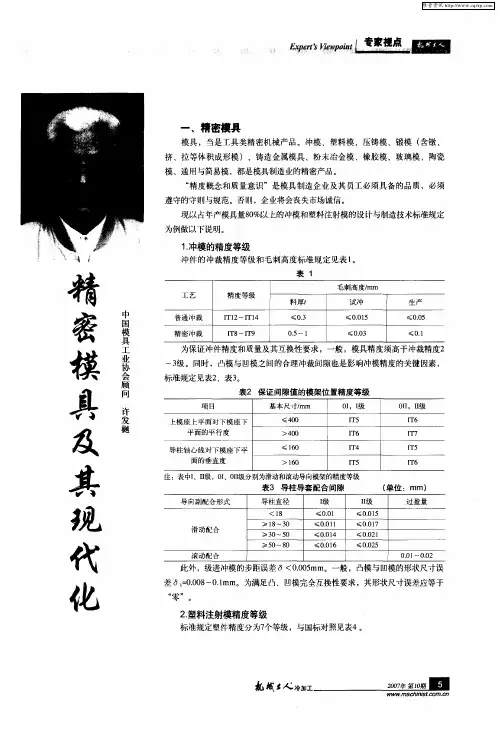 维普资讯 http://www.cqvip.com
Expert's Viewpoint 专家视点
精密模具及其现代化
中国模具工业协会顾问 许发樾
一、精密模具
模具，当是工具类精密机械产品。冲模、塑料模、压铸模、锻模（含镦、
挤、拉等体积成形模）、铸造金属模具、粉末冶金模、橡胶模、玻璃模、陶瓷
模、通用与简易模，都是模具制造业的精密产品。
“精度概念和质量意识”是模具制造企业及其员工必须具备的品质，必须
遵守的守则与规范。否则，企业将会丧失市场诚信。
现以占年产模具量80%以上的冲模和塑料注射模的设计与制造技术标准规定
为例做以下说明。
1.冲模的精度等级
冲件的冲裁精度等级和毛刺高度标准规定见表1。
表 1
工艺 精度等级 毛刺高度/mm
料厚t 试冲 生产
普通冲裁 IT12～IT14 ≤0.3 ≤0.015 ≤0.05
精密冲裁 IT8～IT9 0.5～1 ≤0.03 ≤0.1
为保证冲件精度和质量及其互换性要求，一般，模具精度须高于冲裁精度2
～3级。同时，凸模与凹模之间的合理冲裁间隙也是影响冲模精度的关键因素，
标准规定见表2、表3。
表2 保证间隙值的模架位置精度等级
项目 基本尺寸/mm 0I、I级 0II、II级
上模座上平面对下模座下平面的平行度 ≤400 IT5 IT6
>400 IT6 IT7
导柱轴心线对下模座下平面的垂直度 ≤160 IT4 IT5
>160 IT5 IT6
注：表中I、II级，0I、0II级分别为滑动和滚动导向模架的精度等级
表3 导柱导套配合间隙 (单位：mm)
导向副配合形式 导柱直径 I级 II级 过盈量
滑动配合 <18 ≤0.01 ≤0.015
≥18～30 ≤0.011 ≤0.017
≥30～50 ≤0.014 ≤0.021
≥50～80 ≤0.016 ≤0.025
滚动配合 0.01～0.02
此外，级进冲模的步距误差δ<0.005mm。一般，凸模与凹模的形状尺寸误
差δ₁=0.008～0.1mm。为满足凸、凹模完全互换性要求，其形状尺寸误差应等于
“零”。
2.塑料注射模精度等级
标准规定塑件精度分为7个等级，与国标对照见表4。
机械工人 冷加工
2007年 第10期 5
www.machinist.com.cn